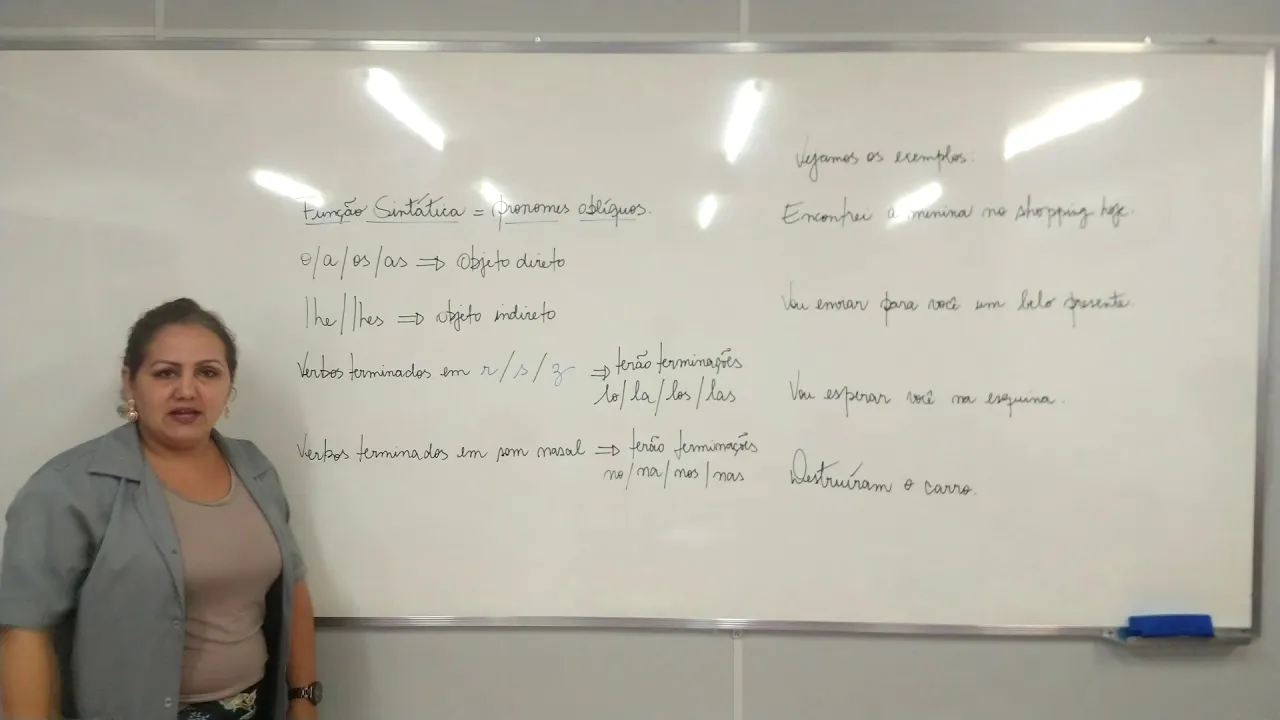 Função Sintática = pronomes oblíquos.
o/a/os/as ⇒ Objeto direto
lhe/lhes ⇒ objeto indireto
Verbos terminados em r/s/z ⇒ terão terminações
lo/la/los/las
Verbos terminados em som nasal ⇒ terão terminações
no/na/nos/nas
Vejamos os exemplos:
Encontrei a menina no shopping hoje.
Vou enviar para você um belo presente.
Vou esperar você na esquina.
Destruíram o carro.